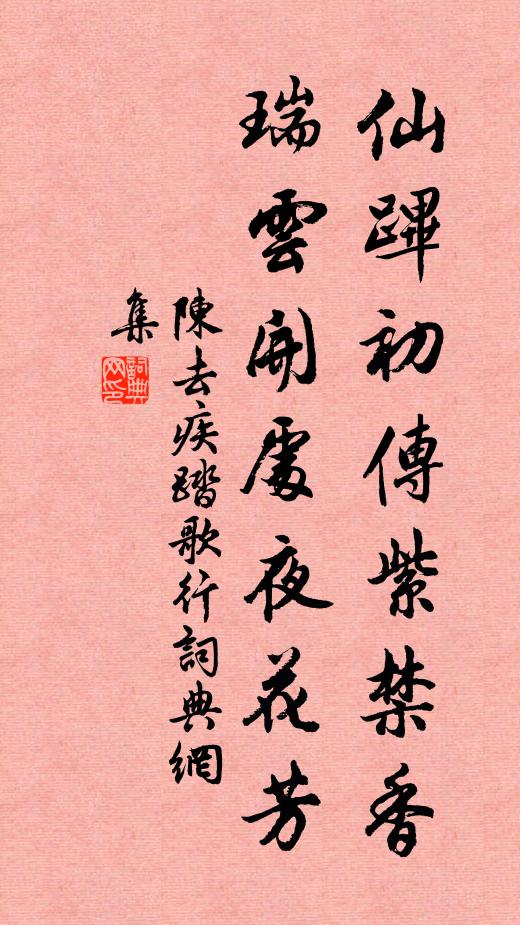 仙蹕初傳紫禁香
瑞雲開處夜花芳
陳去疾踏歌行詞典網
集
詞典
网印